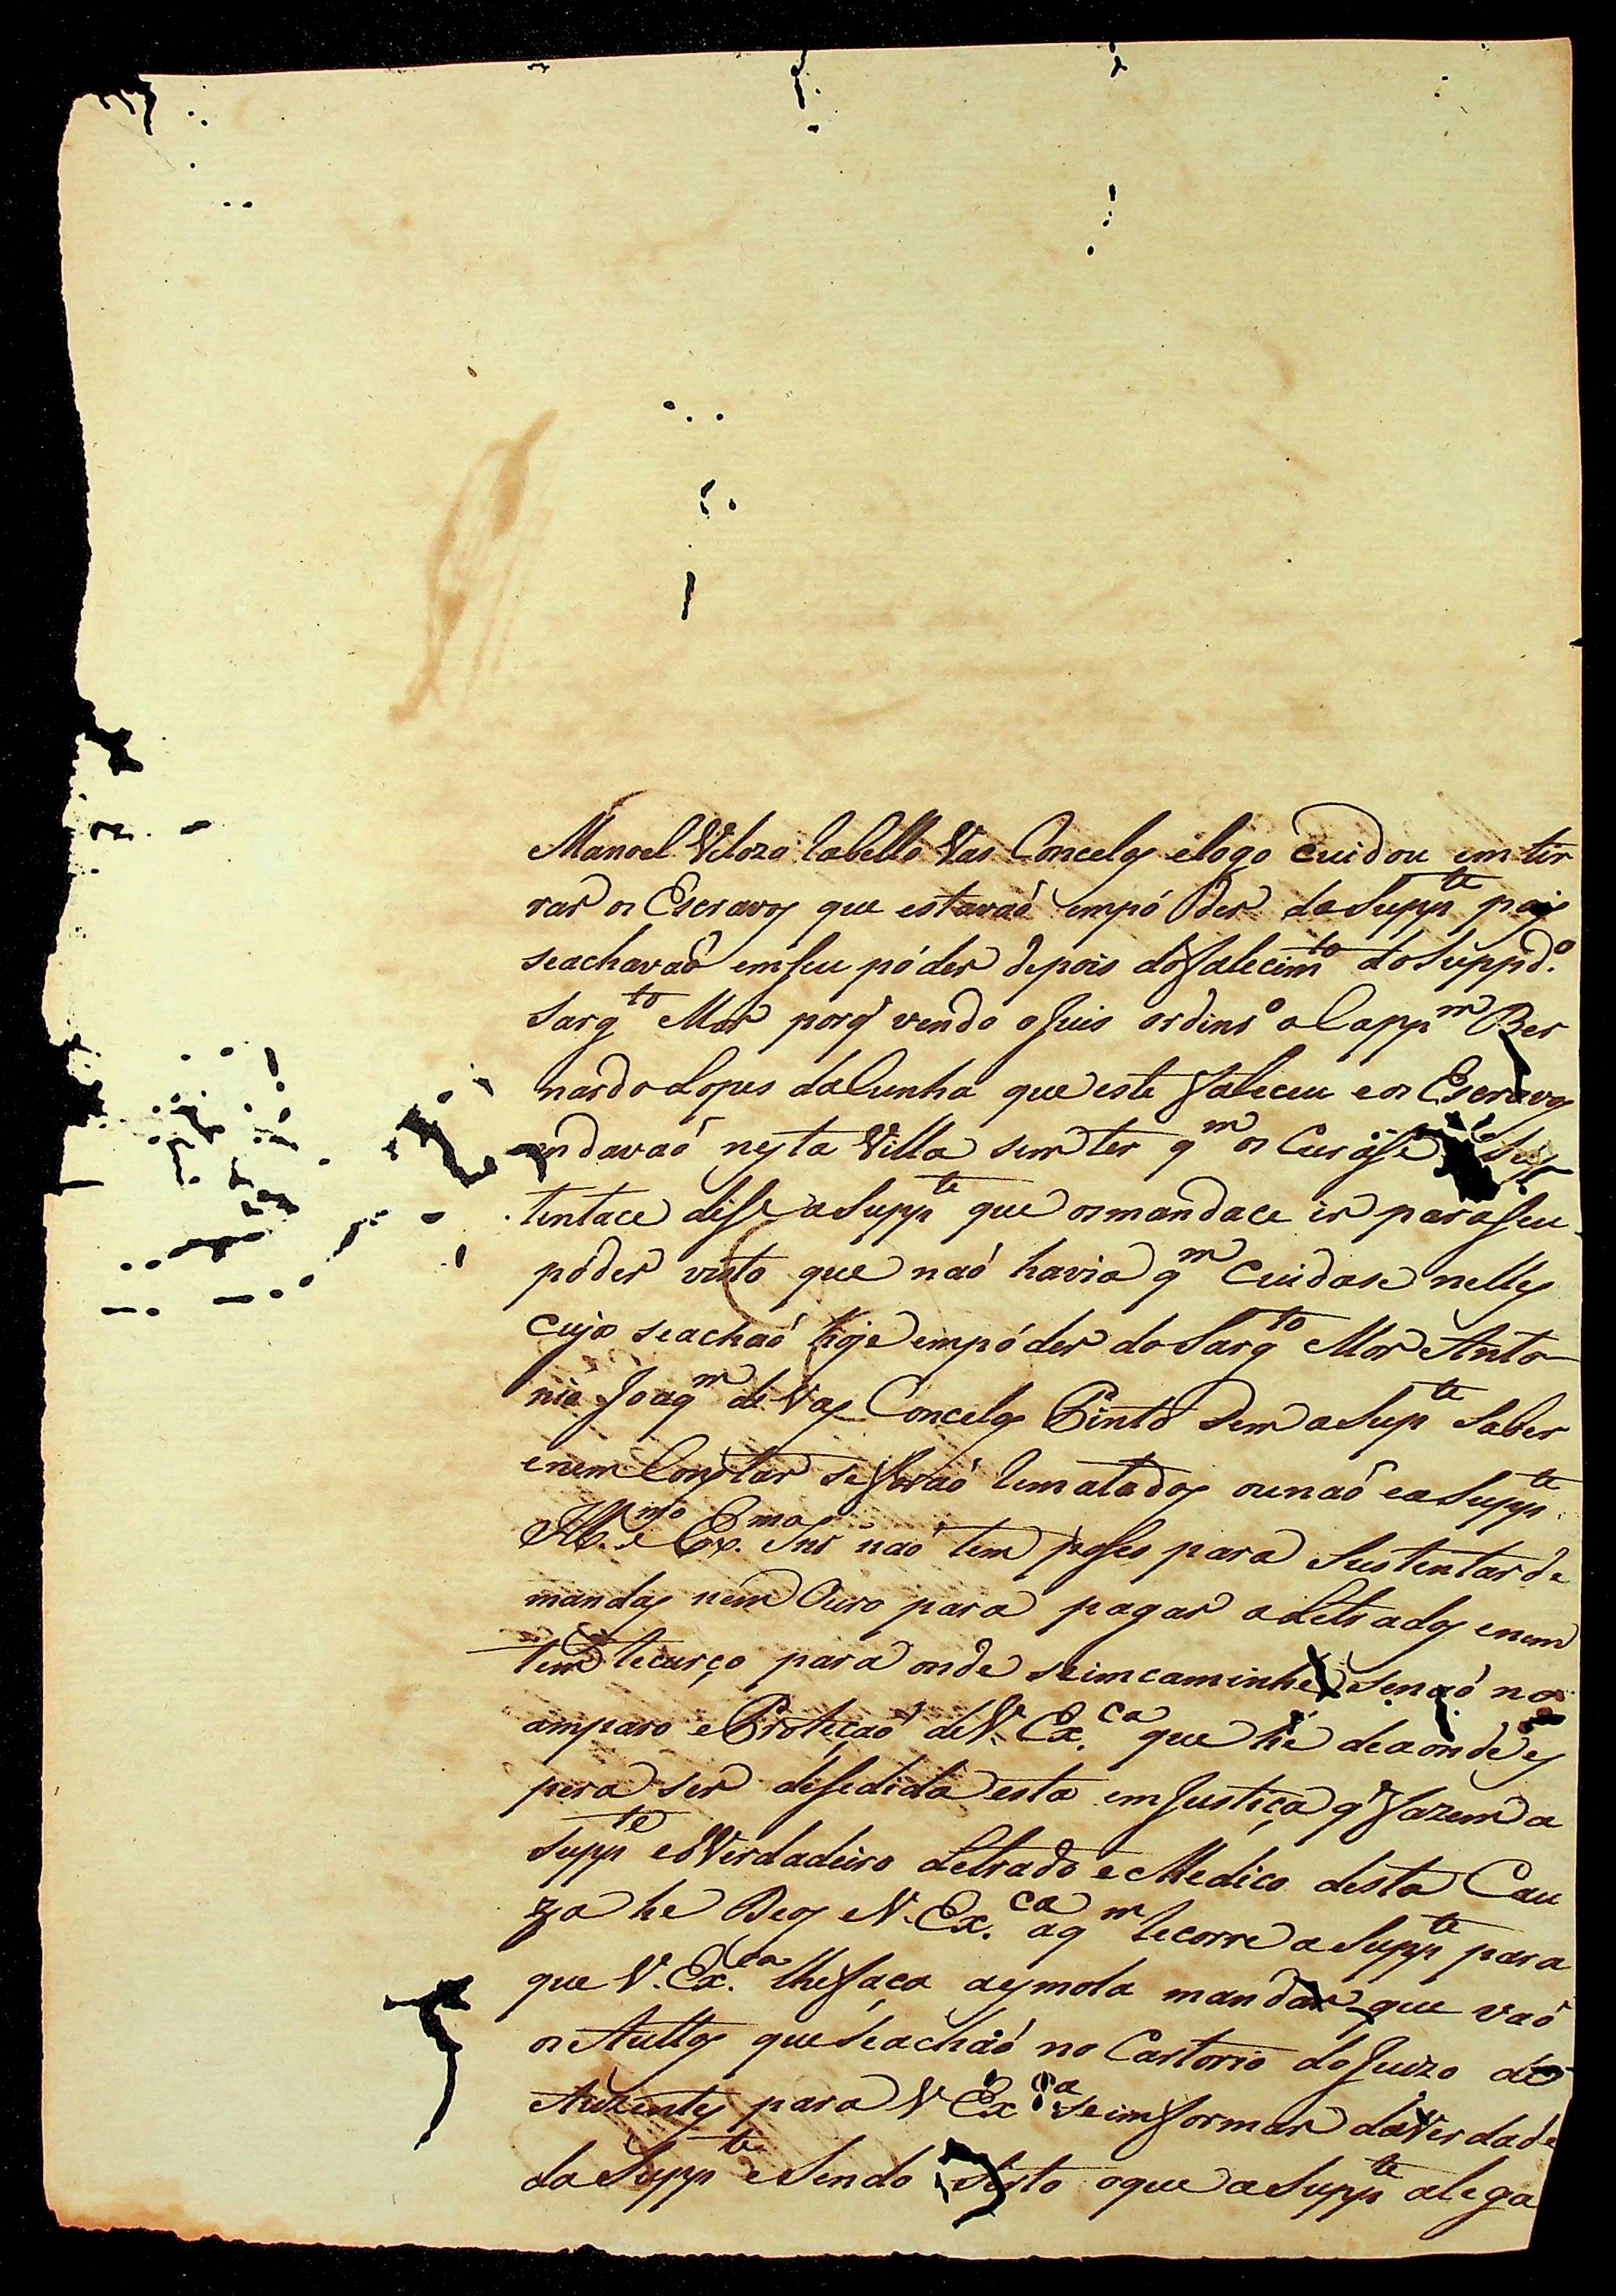 Manoel Vilozo Cabello Vas Concelos elogo cuidou em tir
rar os Escravos que estavaõ empó der da Supp.te pois
seachavaõ emseu póder depois do falecim.to do Supp.do
Sarg.to Mor porq' vendo o Juis ordinr.o o Capp.m Ber
nardo Lopes da Cunha que este faleceu e os Escravos
andavaõ nesta Villa sem ter q.m os Curáse Sus
tentace dise a Supp.te que os mandace ir para seu
póder visto que naõ havia q.m cuidase nelles
cujos seachaõ hoje empóder do Sarg.to Mor Anto
nio Joaq.m de Vas Concelos Pinto Sem a Sup.te Saber
enem Constar se foraõ Rematados ounaõ ea Supp.te
Ill.mo e Ex.mo Snr naõ tem poses para Sustentar de
mandas nem Ouro para pagar a Letrados enem
tem Recurço para onde seimcaminhe Senaõ no
amparo e Proteçaõ de V. Ex.ca que hé deaonde es
pera ser desedida esta emJustiça q' fazem a
Supp.te e o Verdadeiro Letrado e Medico desta Cau
za he Deos e V. Ex.ca aq.m Recorre a Supp.te para
que V. Ex.ca lhe faça aesmola mandar que vaõ
os Auttos que Seachaõ no Cartorio do Juizo de
Auzentes para V Ex.ca Seimformar da Verdade
da Supp.te e Sendo Visto oque a Supp.te alega